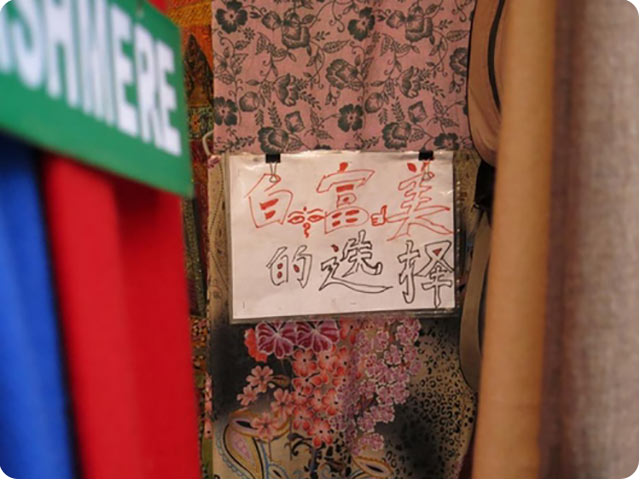 SHMERE
白富美
的选择